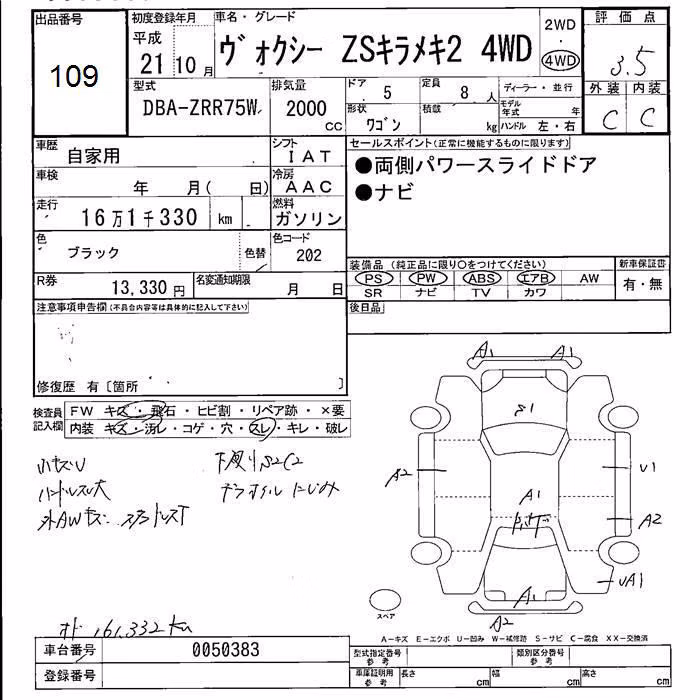 出品番号
109
初度登録年月
平成
21 10 月
車名・グレード
ヴォクシー ZSキラメキ2 4WD
2WD
・
4WD
評価点
3.5
外装 内装
C C
型式
DBA-ZRR75W
排気量
2000
CC
ドア
5
定員
8 人
形状
ワゴン
積載
kg
ディーラー・並行
モデル年式 年
ハンドル 左・右
車歴
自家用
シフト
IAT
車検
年 月( 日)
冷房
AAC
走行
16万1千330 km
燃料
ガソリン
色
ブラック
色替
色コード
202
R券
13,330 円
名変通知期限
月 日
セールスポイント(正常に機能するものに限ります)
●両側パワースライドドア
●ナビ
装備品 (純正品に限り○をつけてください)
新車保証書
PS PW ABS エアB AW
SR ナビ TV カワ
有・無
後日品
注意事項申告欄(不具合内容等は具体的に記入して下さい)
修復歴 有〔箇所 〕
検査員
記入欄
FW キズ・飛石・ヒビ割・リペア跡・×要
内装 キズ・汚レ・コゲ・穴・スレ・キレ・破レ
小キズU
ハンドルスレ大
外AWキズ
下廻りS2C2
オイルにじみ
A1 A1
S1
A2
U1
A1
A2
UA1
A1
A2
スペア
A-キズ E-エクボ U-凹み W-補修跡 S-サビ C-腐食 XX-交換済
オド 161,332km
車台番号
0050383
登録番号
型式指定番号
参考
類別区分番号
参考
車庫証明用
参考
長さ cm
幅 cm
高さ cm